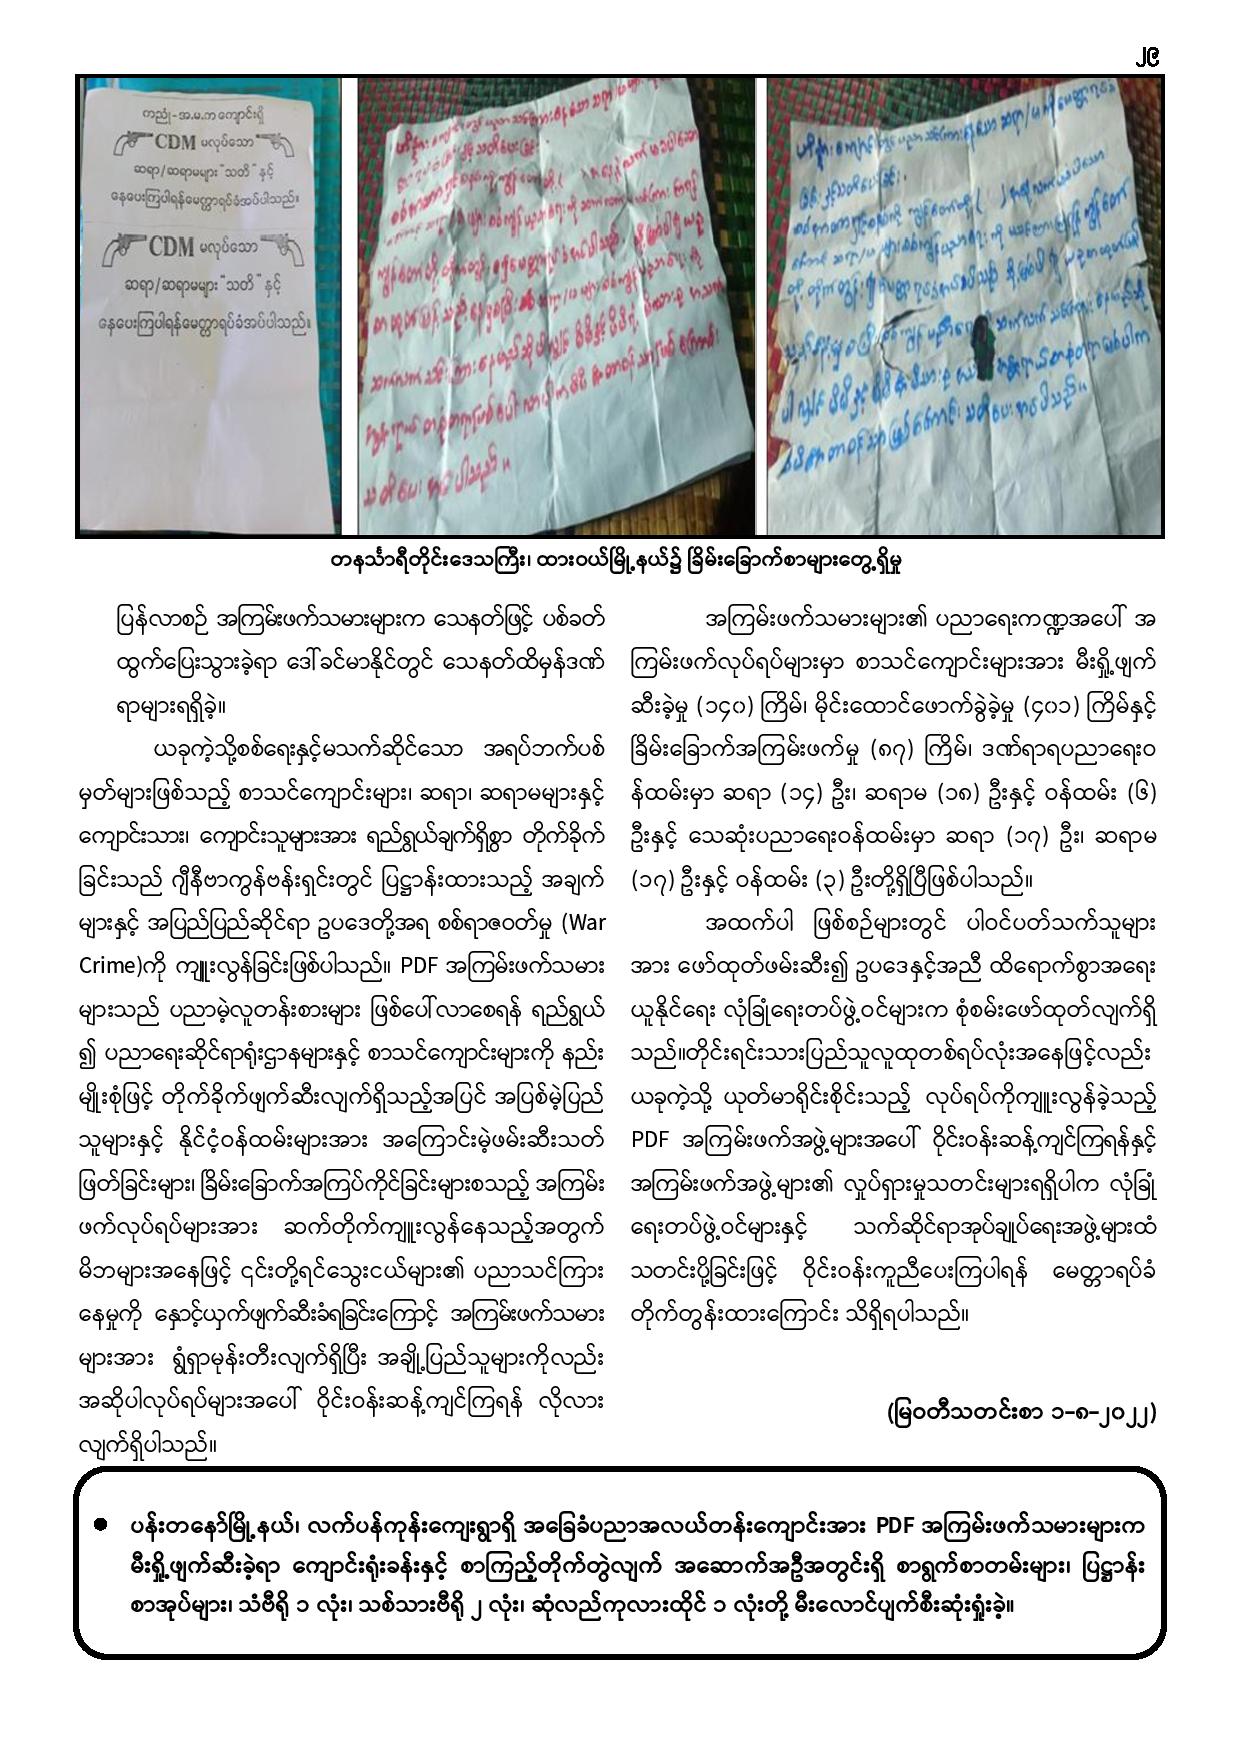 ၂၉
ကညုံ-အ.မ.က ကျောင်းရှိ
CDM မလုပ်သော
ဆရာ/ဆရာမများ "သတိ" နှင့်
နေပေးကြပါရန်မေတ္တာရပ်ခံအပ်ပါသည်။
CDM မလုပ်သော
ဆရာ/ဆရာမများ "သတိ" နှင့်
နေပေးကြပါရန်မေတ္တာရပ်ခံအပ်ပါသည်။
တနင်္သာရီတိုင်းဒေသကြီး၊ ထားဝယ်မြို့နယ်၌ ခြိမ်းခြောက်စာများတွေ့ရှိမှု
ပြန်လာစဉ် အကြမ်းဖက်သမားများက သေနတ်ဖြင့် ပစ်ခတ်
ထွက်ပြေးသွားခဲ့ရာ ဒေါ်ခင်မာနိုင်တွင် သေနတ်ထိမှန်ဒဏ်
ရာများရရှိခဲ့။
ယခုကဲ့သို့စစ်ရေးနှင့်မသက်ဆိုင်သော အရပ်ဘက်ပစ်
မှတ်များဖြစ်သည့် စာသင်ကျောင်းများ၊ ဆရာ၊ ဆရာမများနှင့်
ကျောင်းသား၊ ကျောင်းသူများအား ရည်ရွယ်ချက်ရှိစွာ တိုက်ခိုက်
ခြင်းသည် ဂျီနီဗာကွန်ဗန်းရှင်းတွင် ပြဋ္ဌာန်းထားသည့် အချက်
များနှင့် အပြည်ပြည်ဆိုင်ရာ ဥပဒေတို့အရ စစ်ရာဇဝတ်မှု (War
Crime)ကို ကျူးလွန်ခြင်းဖြစ်ပါသည်။ PDF အကြမ်းဖက်သမား
များသည် ပညာမဲ့လူတန်းစားများ ဖြစ်ပေါ်လာစေရန် ရည်ရွယ်
၍ ပညာရေးဆိုင်ရာရုံးဌာနများနှင့် စာသင်ကျောင်းများကို နည်း
မျိုးစုံဖြင့် တိုက်ခိုက်ဖျက်ဆီးလျက်ရှိသည့်အပြင် အပြစ်မဲ့ပြည်
သူများနှင့် နိုင်ငံ့ဝန်ထမ်းများအား အကြောင်းမဲ့ဖမ်းဆီးသတ်
ဖြတ်ခြင်းများ၊ ခြိမ်းခြောက်အကြပ်ကိုင်ခြင်းများစသည့် အကြမ်း
ဖက်လုပ်ရပ်များအား ဆက်တိုက်ကျူးလွန်နေသည့်အတွက်
မိဘများအနေဖြင့် ၎င်းတို့ရင်သွေးငယ်များ၏ ပညာသင်ကြား
နေမှုကို နှောင့်ယှက်ဖျက်ဆီးခံရခြင်းကြောင့် အကြမ်းဖက်သမား
များအား ရွံရှာမုန်းတီးလျက်ရှိပြီး အချို့ပြည်သူများကိုလည်း
အဆိုပါလုပ်ရပ်များအပေါ် ဝိုင်းဝန်းဆန့်ကျင်ကြရန် လိုလား
လျက်ရှိပါသည်။
အကြမ်းဖက်သမားများ၏ ပညာရေးကဏ္ဍအပေါ် အ
ကြမ်းဖက်လုပ်ရပ်များမှာ စာသင်ကျောင်းများအား မီးရှို့ဖျက်
ဆီးခဲ့မှု (၁၄၀) ကြိမ်၊ မိုင်းထောင်ဖောက်ခွဲခဲ့မှု (၄၀၁) ကြိမ်နှင့်
ခြိမ်းခြောက်အကြမ်းဖက်မှု (၈၇) ကြိမ်၊ ဒဏ်ရာရပညာရေးဝ
န်ထမ်းမှာ ဆရာ (၁၄) ဦး၊ ဆရာမ (၁၈) ဦးနှင့် ဝန်ထမ်း (၆)
ဦးနှင့် သေဆုံးပညာရေးဝန်ထမ်းမှာ ဆရာ (၁၇) ဦး၊ ဆရာမ
(၁၇) ဦးနှင့် ဝန်ထမ်း (၃) ဦးတို့ရှိပြီဖြစ်ပါသည်။
အထက်ပါ ဖြစ်စဉ်များတွင် ပါဝင်ပတ်သက်သူများ
အား ဖော်ထုတ်ဖမ်းဆီး၍ ဥပဒေနှင့်အညီ ထိရောက်စွာအရေး
ယူနိုင်ရေး လုံခြုံရေးတပ်ဖွဲ့ဝင်များက စုံစမ်းဖော်ထုတ်လျက်ရှိ
သည်။တိုင်းရင်းသားပြည်သူလူထုတစ်ရပ်လုံးအနေဖြင့်လည်း
ယခုကဲ့သို့ ယုတ်မာရိုင်းစိုင်းသည့် လုပ်ရပ်ကိုကျူးလွန်ခဲ့သည့်
PDF အကြမ်းဖက်အဖွဲ့များအပေါ် ဝိုင်းဝန်းဆန့်ကျင်ကြရန်နှင့်
အကြမ်းဖက်အဖွဲ့များ၏ လှုပ်ရှားမှုသတင်းများရရှိပါက လုံခြုံ
ရေးတပ်ဖွဲ့ဝင်များနှင့် သက်ဆိုင်ရာအုပ်ချုပ်ရေးအဖွဲ့များထံ
သတင်းပို့ခြင်းဖြင့် ဝိုင်းဝန်းကူညီပေးကြပါရန် မေတ္တာရပ်ခံ
တိုက်တွန်းထားကြောင်း သိရှိရပါသည်။
(မြဝတီသတင်းစာ ၁-၈-၂၀၂၂)
• ပန်းတနော်မြို့နယ်၊ လက်ပန်ကုန်းကျေးရွာရှိ အခြေခံပညာအလယ်တန်းကျောင်းအား PDF အကြမ်းဖက်သမားများက
မီးရှို့ဖျက်ဆီးခဲ့ရာ ကျောင်းရုံးခန်းနှင့် စာကြည့်တိုက်တွဲလျက် အဆောက်အဦအတွင်းရှိ စာရွက်စာတမ်းများ၊ ပြဋ္ဌာန်း
စာအုပ်များ၊ သံဗီရို ၁ လုံး၊ သစ်သားဗီရို ၂ လုံး၊ ဆုံလည်ကုလားထိုင် ၁ လုံးတို့ မီးလောင်ပျက်စီးဆုံးရှုံးခဲ့။